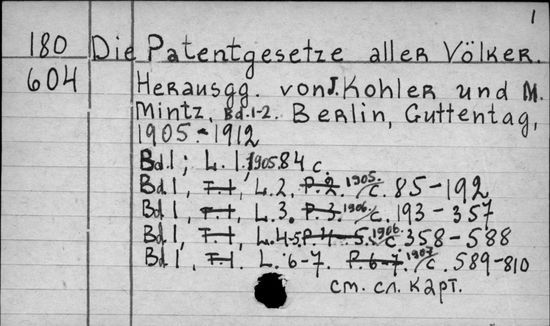 1
180 Die Patentgesetze aller Völker.
604 Herausgg. von J. Kohler und M.
Mintz. Bd. 1-2. Berlin, Guttentag,
1905-1912
Bd. 1; L. 1. 1905 84 c.
Bd. 1, T. 1, L. 2. P. 2. 1905. /c. 85-192
Bd. 1, T. 1, L. 3. P. 3. 1906. /c. 193-357
Bd. 1, T. 1, L. 4-5. P. 4-5. 1906. /c. 358-588
Bd. 1, T. 1. L. 6-7. P. 6-7. 1907. /c. 589-810
см. сл. карт.